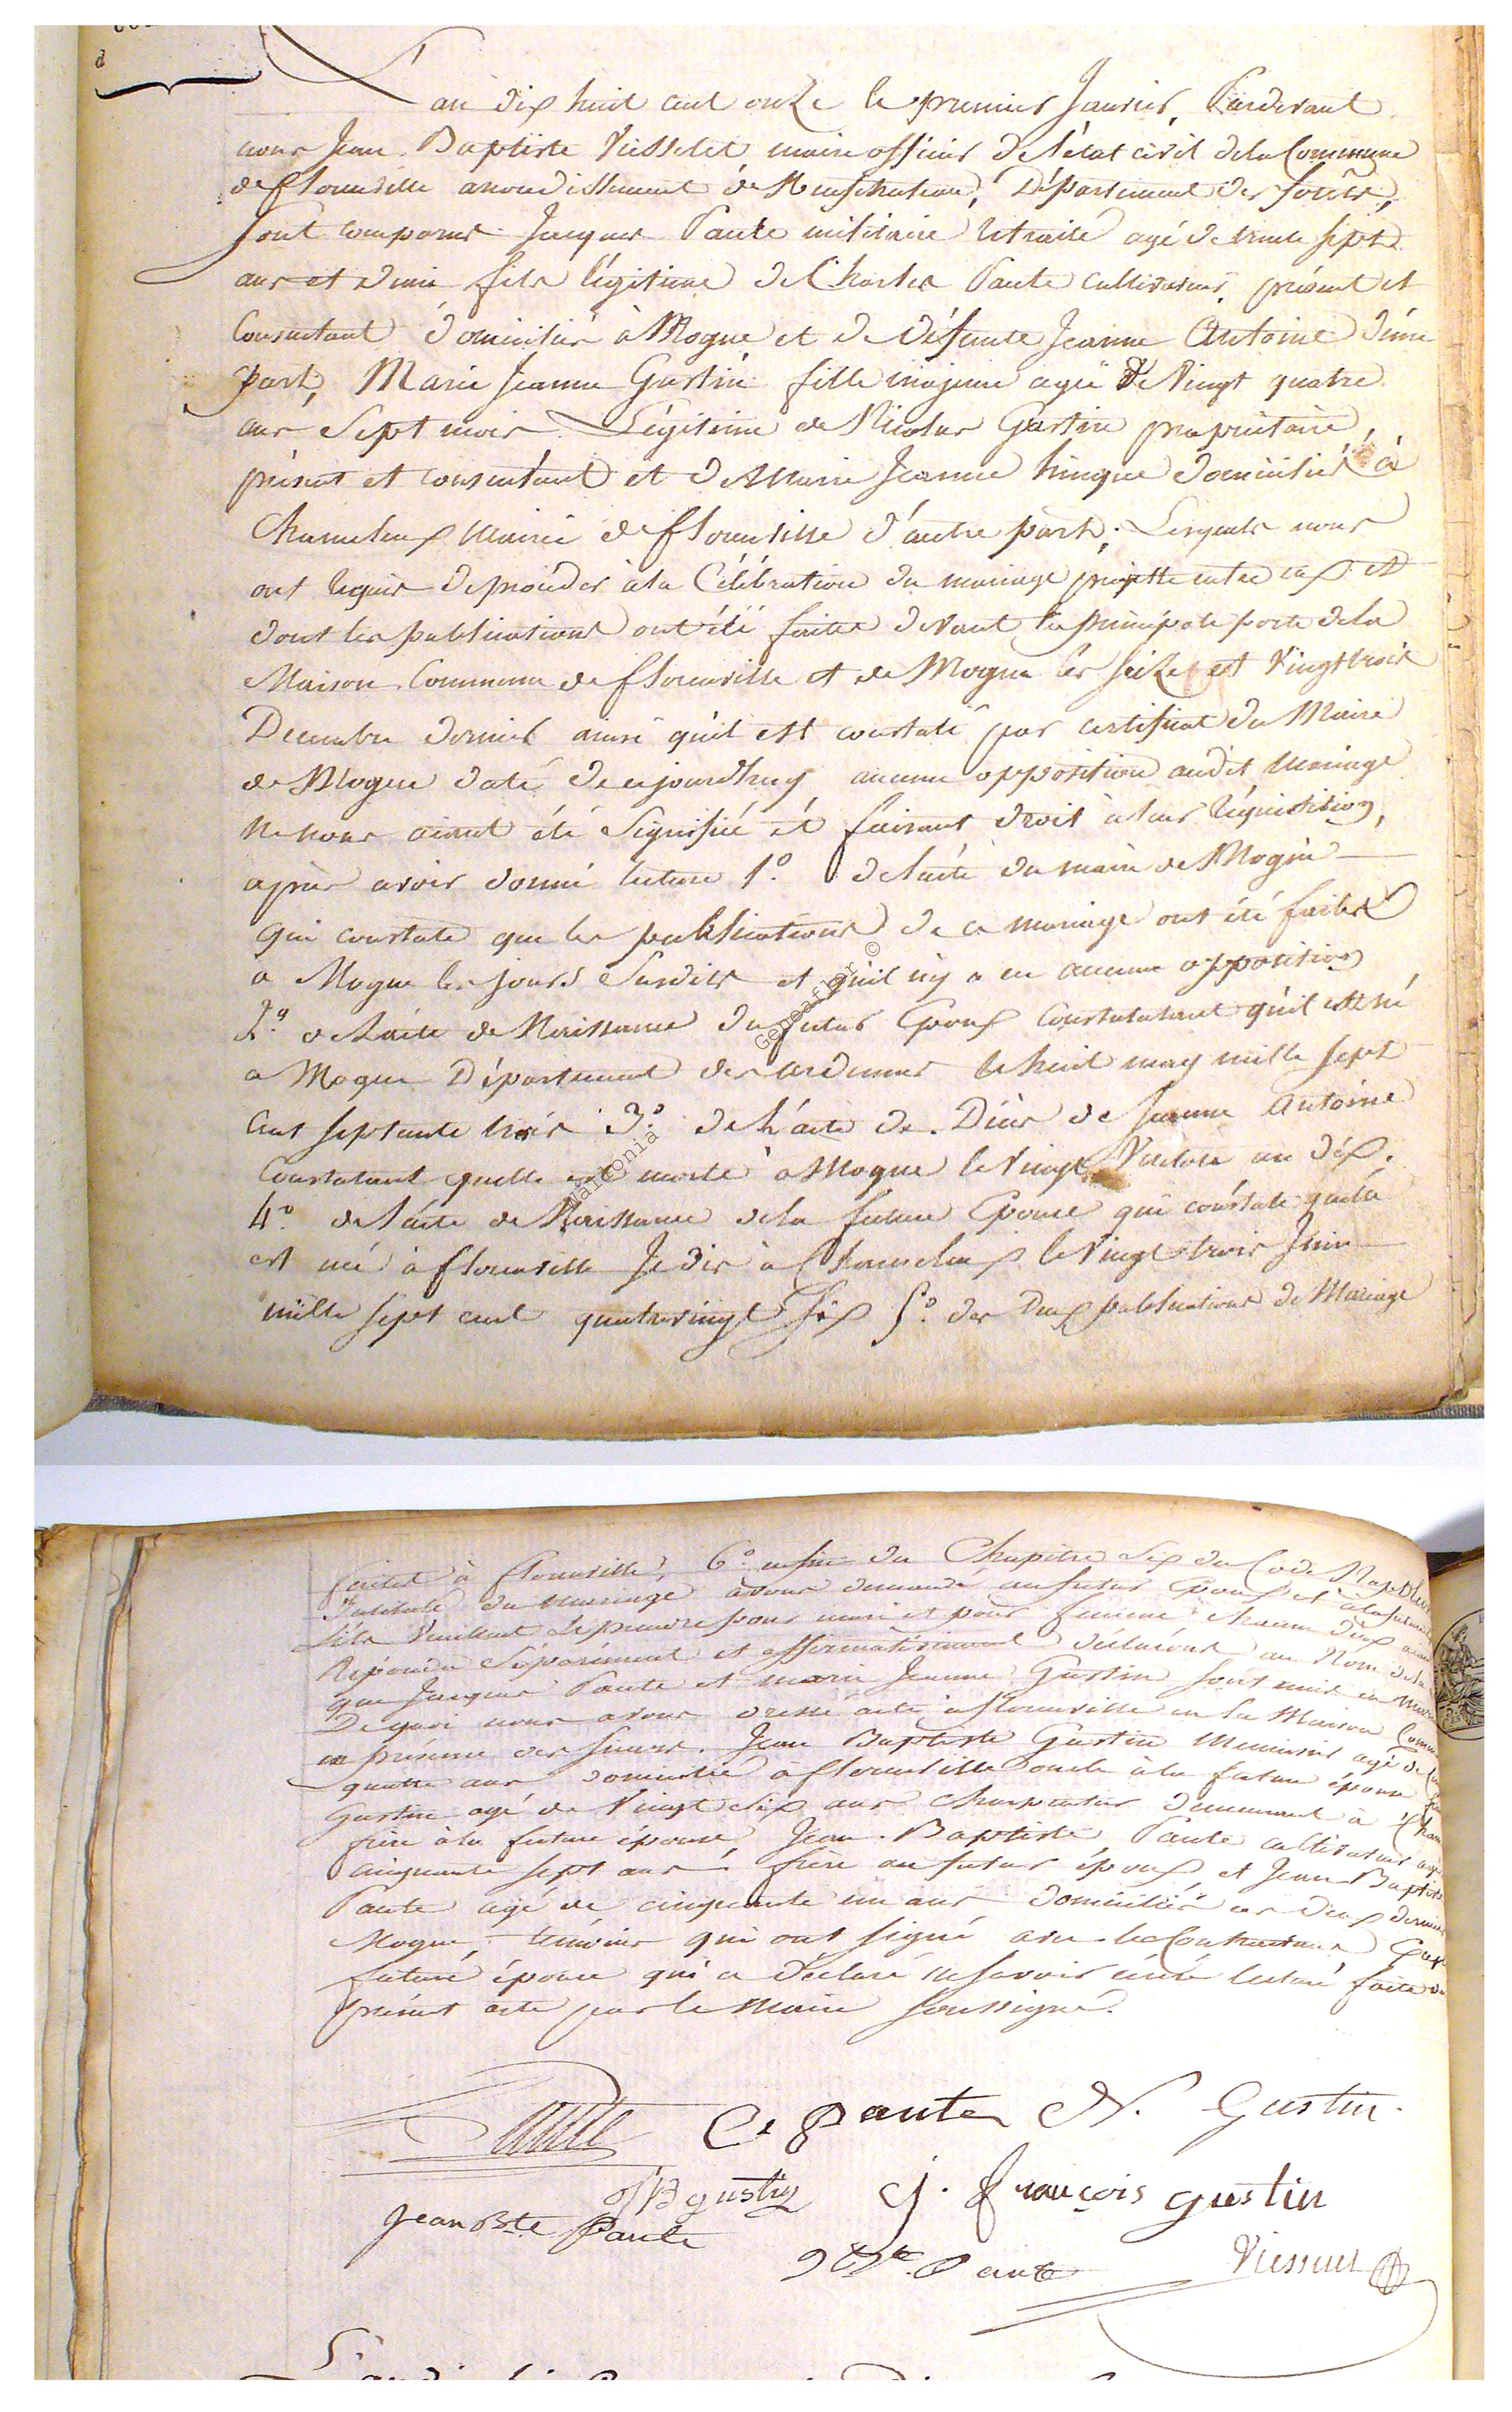 an dix huit cent onze le premier Janvier, Pardevant
nous Jean Baptiste Viesselet maire officier de l'état civil de la Commune
de florenville arrondissement de Neufchateau, Département des forêts,
sont comparus Jacques Pante militaire retraité agé de trente sept
ans et demi fils légitime de Charles Pante cultivateur, présent et
Consentant domicilié à Mogue et de défunte Jeanne Antoine d'une
part, Marie Jeanne Gustin fille majeure agée de vingt quatre
ans sept mois Légitime de Nicolas Gustin propriétaire,
présent et consentant et de Marie Jeanne hinque domiciliés à
Chameleux Mairie de florenville d'autre part; Lesquels nous
ont requis de procéder à la Célébration du mariage projetté entre eux et
dont les publications ont été faites devant la principale porte de la
Maison Commune de florenville et de Mogue les seize et vingt trois
Decembre dernier ainsi qu'il est constaté par certificat du Maire
de Mogue daté de cejourdhuy aucune opposition audit mariage
ne nous aiant été signifiée et faisant droit à leur réquisition,
après avoir donné lecture 1.o de l'acte du maire de Mogue
qui constate que les publications de ce mariage ont été faites
a Mogue les jours susdits et qu'il n'y a eu aucune opposition
2.o de l'acte de Naissance du futur Epoux constatant qu'il est né
a Mogue Département des ardennes le huit may mille sept
cent septante trois 3.o de l'acte de Décès de Jeanne Antoine
Constatant quelle est morte à Mogue le vingt Ventose an dix.
4.o de l'acte de Naissance de la future Epouse qui constate quelle
est née à florenville Je dis à Chameleux le vingt trois Juin
mille sept cent quatre vingt six 5.o des Deux publications de Mariage
faites à florenville, 6.o enfin du Chapitre six du Code Napoléon
Intitulé du mariage avons demandé au futur Epoux et à la future
s'ils veuillent se prendre pour mari et pour femme chacun d'eux aiant
répondu séparément et affirmativement déclarons au Nom de la
que Jacques Pante et marie Jeanne Gustin sont unis en mari
De quoi nous avons dressé acte à florenville en la Maison Comm
en présence des sieurs Jean Baptiste Gustin Menuisier agé de
quatre ans domicilié à florenville oncle à la future épouse
Gustin agé de vingt six ans charpentier demeurant à Cham
frère à la future épouse, Jean Baptiste Pante cultivateur agé
cinquante sept ans frère au futur époux et Jean Baptiste
Pante agé de cinquante un ans domiciliés ces deux derniers
Mogue, témoins qui ont signé avec les Contractans
future épouse qui a déclaré ne savoir écrire lecture faite du
présent acte par le Maire soussigné.
Pante C. pante N. Gustin
JB gustin J. françois gustin
Jean Bte Pante
Pante Viesselet
Geneaflor ©
Maidonia